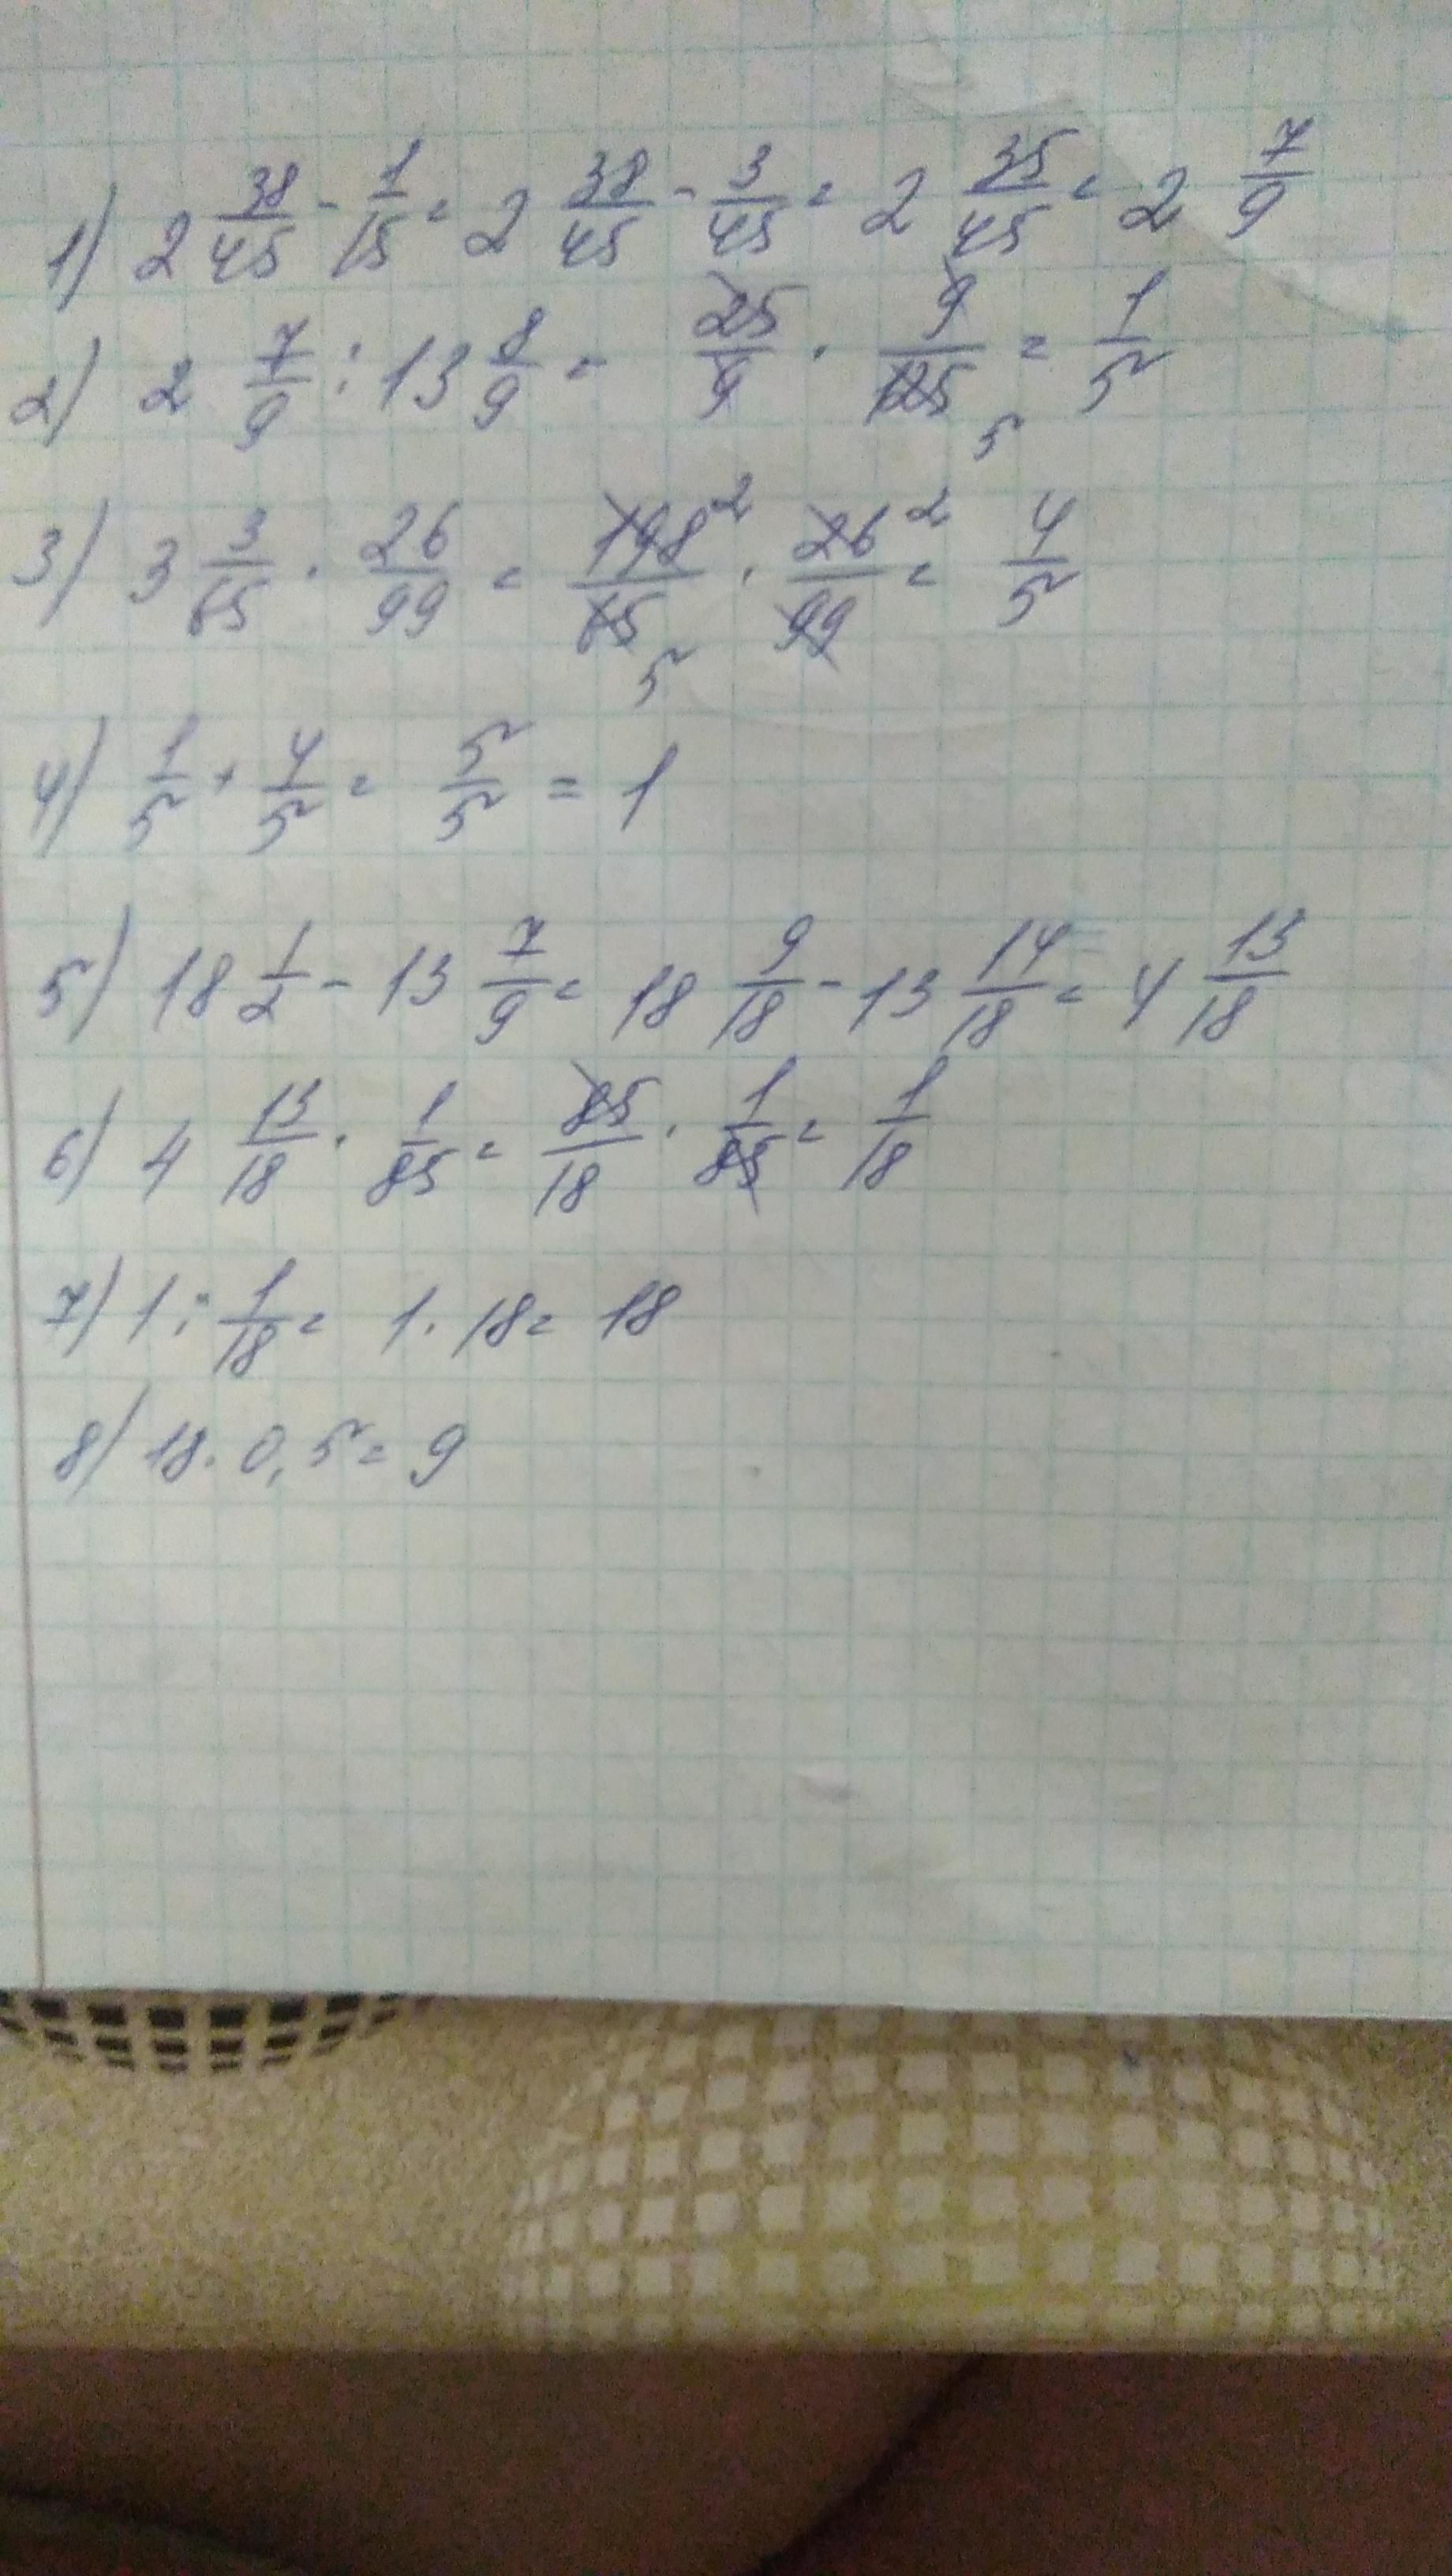 1) 2 38/45 - 1/15 = 2 38/45 - 3/45 = 2 35/45 = 2 7/9
2) 2 7/9 : 13 8/9 = 25/9 · 9/125 5 = 1/5
3) 3 3/65 · 26/99 = 198 2/65 5 · 26 2/99 = 4/5
4) 1/5 + 4/5 = 5/5 = 1
5) 18 1/2 - 13 7/9 = 18 9/18 - 13 14/18 = 4 13/18
6) 4 13/18 · 1/85 = 85/18 · 1/85 = 1/18
7) 1 : 1/18 = 1 · 18 = 18
8) 18 · 0,5 = 9